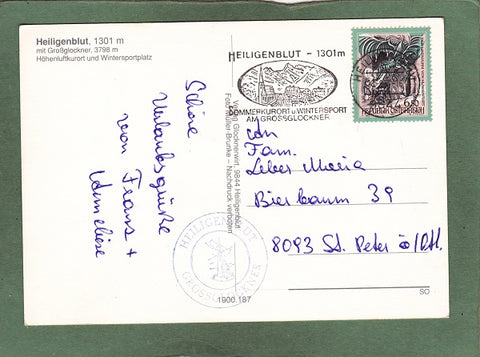 Heiligenblut, 1301 m
mit Großglockner, 3798 m
Höhenluftkurort und Wintersportplatz
Schöne
Urlaubsgrüße
von Franz +
Anneliese
Verlag Glocknerwirt, 9844 Heiligenblut
Nachdruck verboten
HEILIGENBLUT - 1301m
SOMMERKURORT u WINTERSPORT
AM GROSSGLOCKNER
REPUBLIK ÖSTERREICH
An
Fam.
Leber Maria
Bierbaum 39
8093 St. Peter a/Ott.
HEILIGENBLUT
GROSSGLOCKNER
1900 187
SO